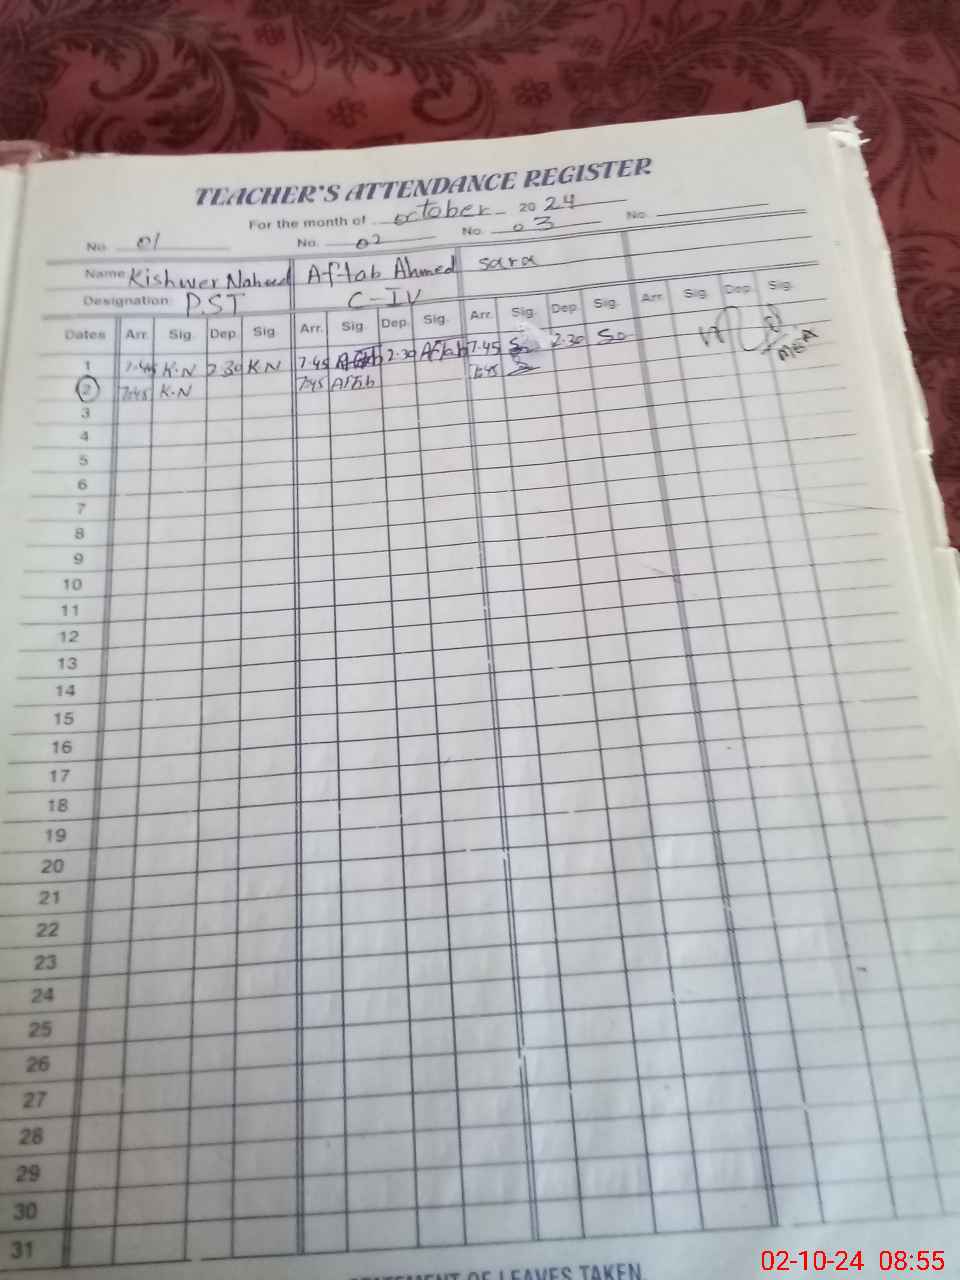 TEACHER'S ATTENDANCE REGISTER
For the month of october 2024
No. 01 No. 02 No. 03 No.
Name Kishwer Naheed Aftab Ahmed sara
Designation P.ST C-IV
Dates Arr. Sig. Dep. Sig. Arr. Sig. Dep. Sig. Arr. Sig. Dep. Sig. Arr. Sig. Dep. Sig.
1 7.45 K.N 2.30 K.N 7.45 Aftab 2.30 Aftab 7.45 2.30 MEA
2 7:45 K.N 7:45 Aftab 7:45
3
4
5
6
7
8
9
10
11
12
13
14
15
16
17
18
19
20
21
22
23
24
25
26
27
28
29
30
31
STATEMENT OF LEAVES TAKEN
02-10-24 08:55